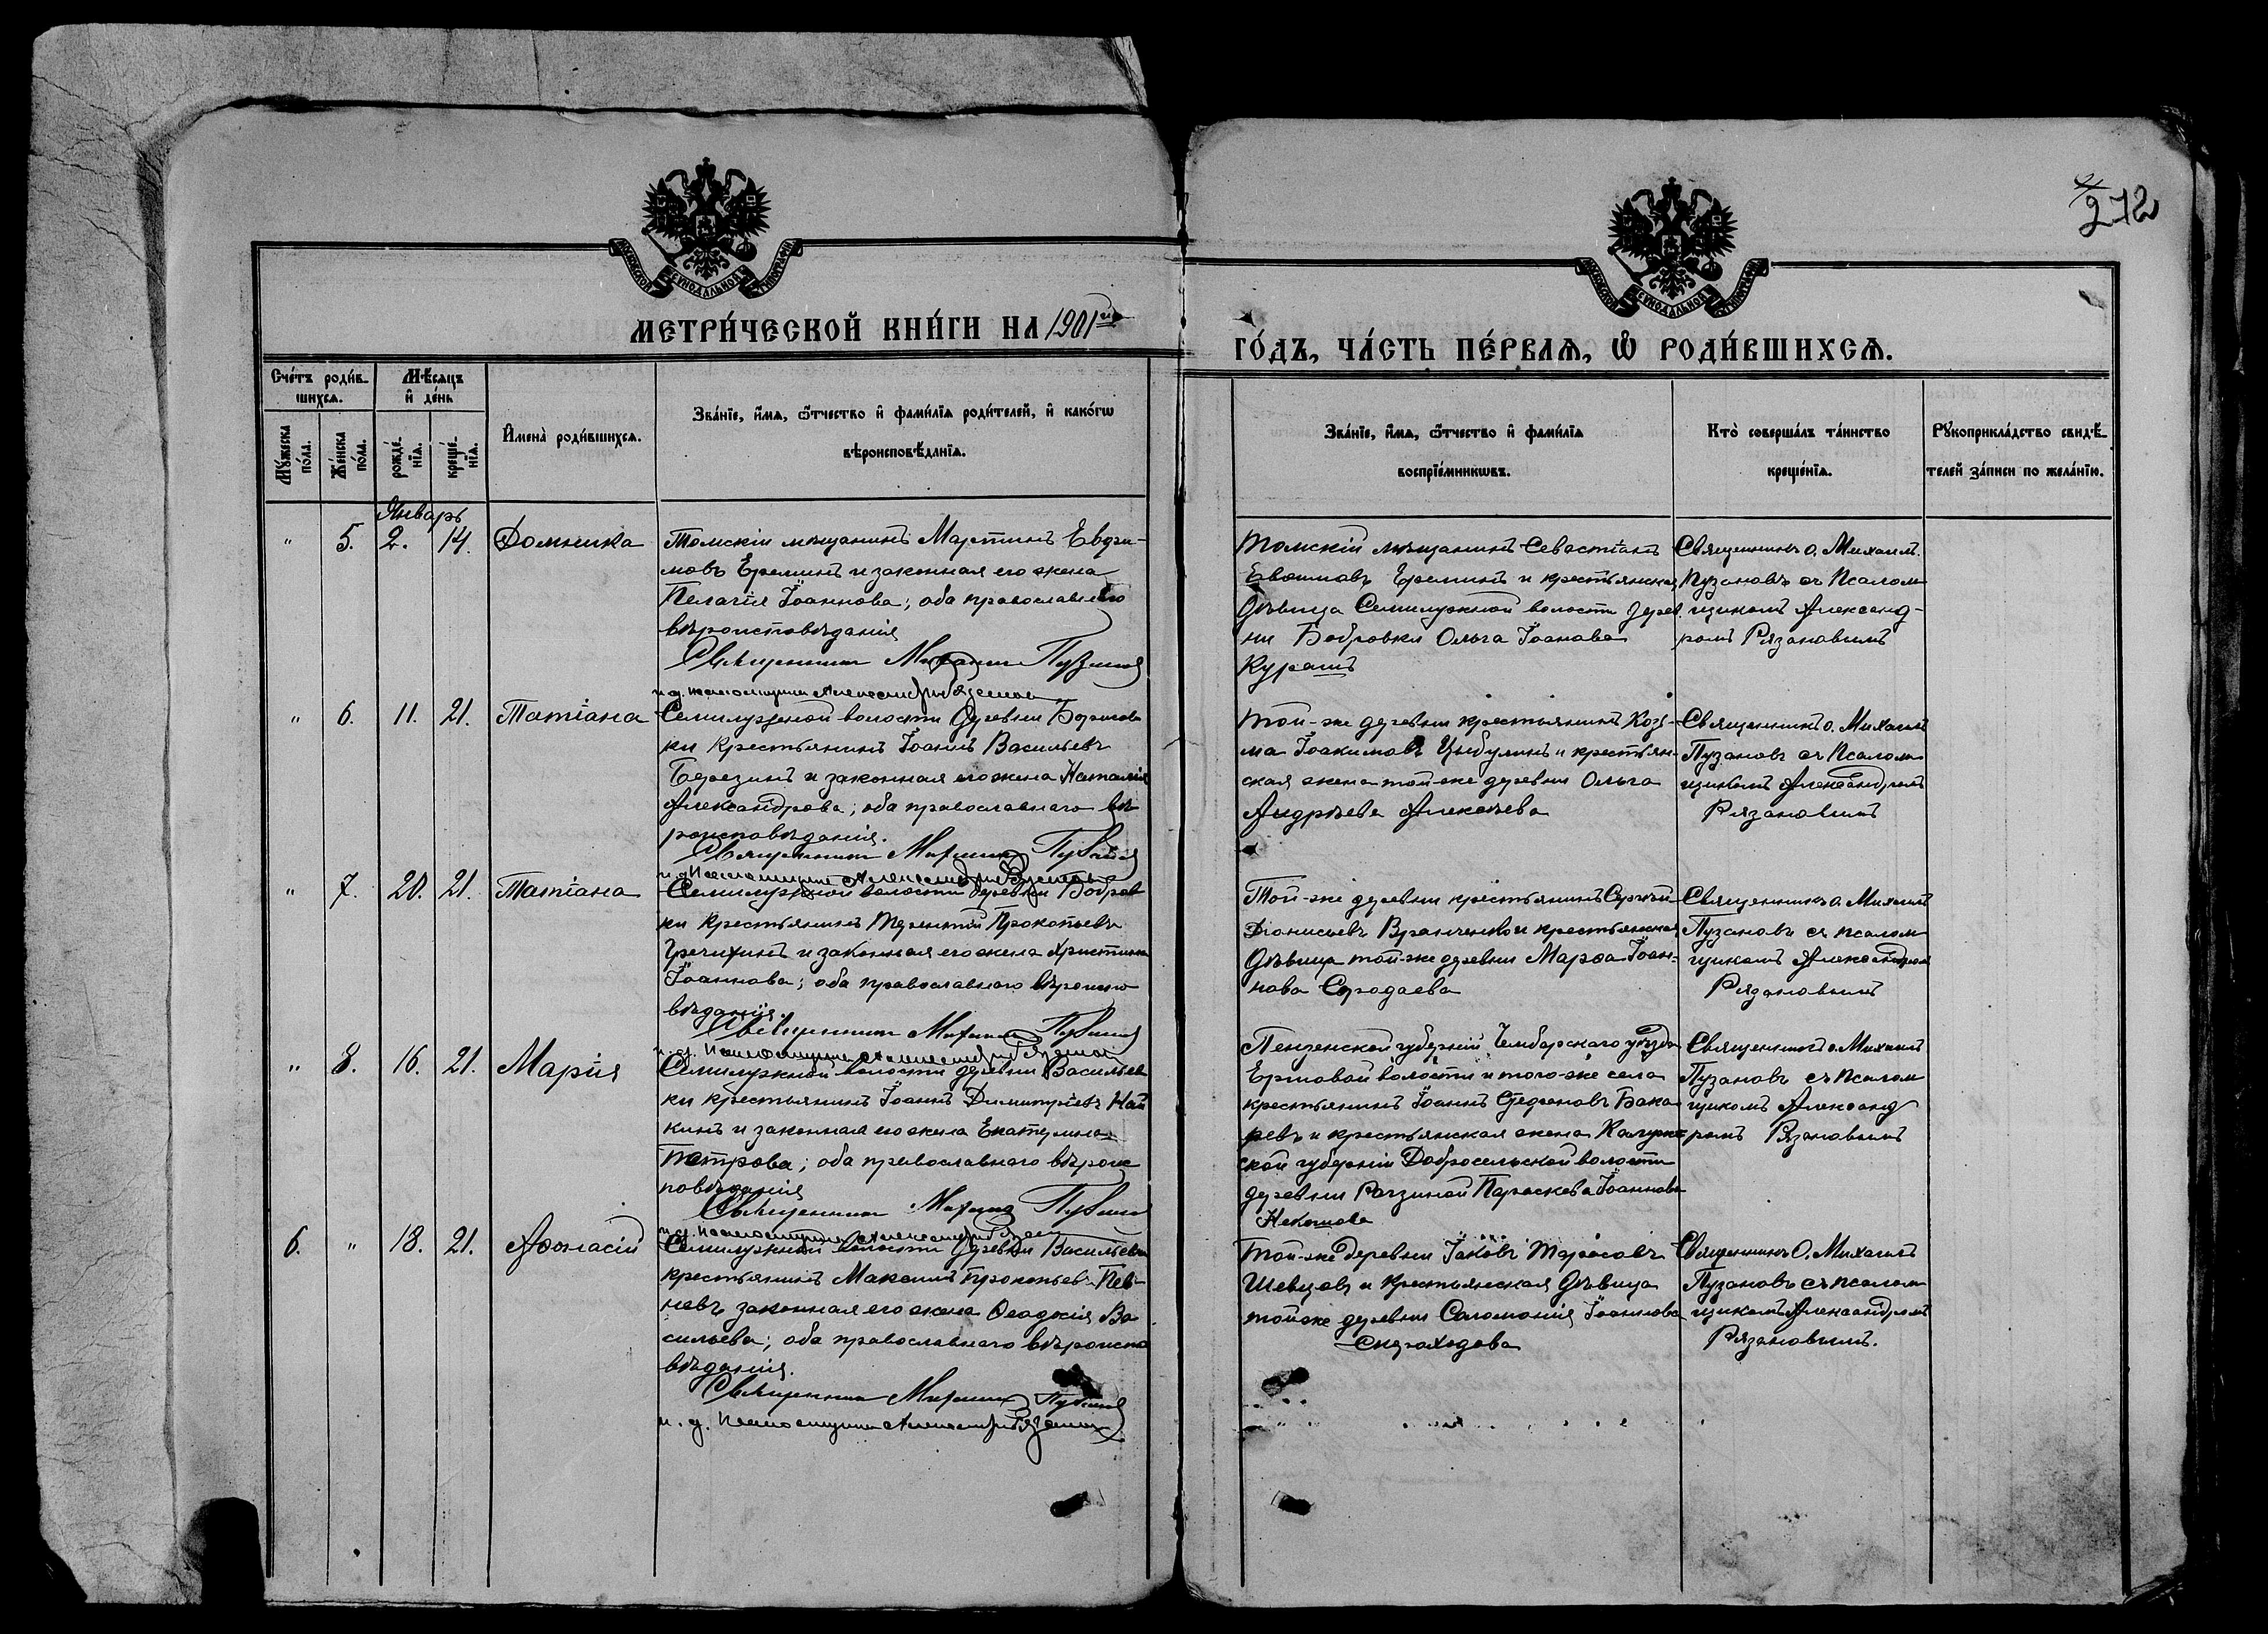 272
МОСКОВСКОЙ СѴНОДАЛЬНОЙ ТИПОГРАФІИ
МОСКОВСКОЙ СѴНОДАЛЬНОЙ ТИПОГРАФІИ
МЕТРИ́ЧЕСКОЙ КНИ́ГИ НА 1901й
ГО́ДЪ, ЧА́СТЬ ПЕ́РВАѦ, Ѡ РОДИ́ВШИХСѦ.
Сче́тъ роди́вшихсѧ.
Мѣ́сяцъ и де́нь
Мꙋ́жеска по́ла.
Же́нска по́ла.
рожде́нїѧ.
креще́нїѧ.
Имена̀ роди́вшихсѧ.
Зва́нїе, и́мѧ, ѻ́тчество и фами́лїѧ роди́телей, и како́гѡ
вѣроисповѣ́данїѧ.
Зва́нїе, и́мѧ, ѻ́тчество и фами́лїѧ
воспрїе́мникѡвъ.
Кто̀ соверша́лъ та́инство
креще́нїѧ.
Рꙋкоприкла́дство свидѣ́телей за́писи по жела́нїю.
Январь
" 5. 2. 14. Домника
Томскій мѣщанинъ Мартинъ Евфи-
мовъ Ереминъ и законная его жена
Пелагія Іоаннова; оба православнаго
вѣроисповѣданія
Священникъ Михаилъ Пузановъ
и. д. псаломщика Александръ Рязановъ
Томскій мѣщанинъ Севастіанъ
Евфимовъ Ереминъ и крестьянская
дѣвица Семилужной волости дерев
ни Бобровки Ольга Іоанова
Курашъ
Священникъ о. Михаилъ
Пузановъ съ Псалом
щикомъ Александ-
ромъ Рязановымъ
" 6. 11. 21. Татіана
Семилужной волости деревни
ки крестьянинъ Іоаннъ Васильевъ
Березинъ и законная его жена Наталія
Александрова; оба православнаго вѣ
роисповѣданія.
Священникъ Михаилъ Пузановъ
и. д. псаломщика Александръ Рязановъ
Той-же деревни крестьянинъ Козь-
ма Іоакимовъ Цыбулинъ и крестьян-
ская жена той-же деревни Ольга
Андрѣева Алексѣева
Священникъ о. Михаилъ
Пузановъ съ Псалом
щикомъ Александромъ
Рязановымъ
" 7. 20. 21. Татіана
Семилужной волости деревни Бобров
ки крестьянинъ Терентій Прокопьевъ
Гречихинъ и законная его жена Христина
Іоаннова; оба православнаго вѣроиспо
вѣданія.
Священникъ Михаилъ Пузановъ
и. д. псаломщика Александръ Рязановъ
Той-же деревни крестьянинъ Сергѣй
Діонисьевъ Вранченко и крестьянская
дѣвица той-же деревни Марѳа Іоан-
нова
Священникъ о. Михаилъ
Пузановъ съ псалом
щикомъ Александромъ
Рязановымъ
" 8. 16. 21. Марія
Семилужной волости деревни Васильев
ки крестьянинъ Іоаннъ Димитріевъ Най
кинъ и законная его жена Екатерина
Петрова; оба православнаго вѣроис
повѣданія
Священникъ Михаилъ Пузановъ
и. д. псаломщика Александръ Рязановъ
Пензенской губерніи Чембарскаго уѣзда
Ершовой волости и того-же села
крестьянинъ Іоаннъ Стефановъ Бака
ревъ и крестьянская жена Калуж
ской губерніи Добросельской волости
деревни Парасковія Іоаннова
Священникъ о. Михаилъ
Пузановъ съ Псалом
щикомъ Александ
ромъ Рязановымъ
6. " 18. 21. Аѳонасій
Семилужной волости деревни Васильевки
крестьянинъ Максимъ Прокопьевъ Пев-
невъ законная его жена Ѳеодосія Ва
сильева; оба православнаго вѣроиспо
вѣданія.
Священникъ Михаилъ Пузановъ
и. д. псаломщика Александръ Рязановъ
Той-же деревни Іаковъ Тарасовъ
Шевцовъ и крестьянская дѣвица
той же деревни Соломонія Іоаннова
Скороходова
Священникъ О. Михаилъ
Пузановъ съ псалом
щикомъ Александромъ
Рязановымъ.